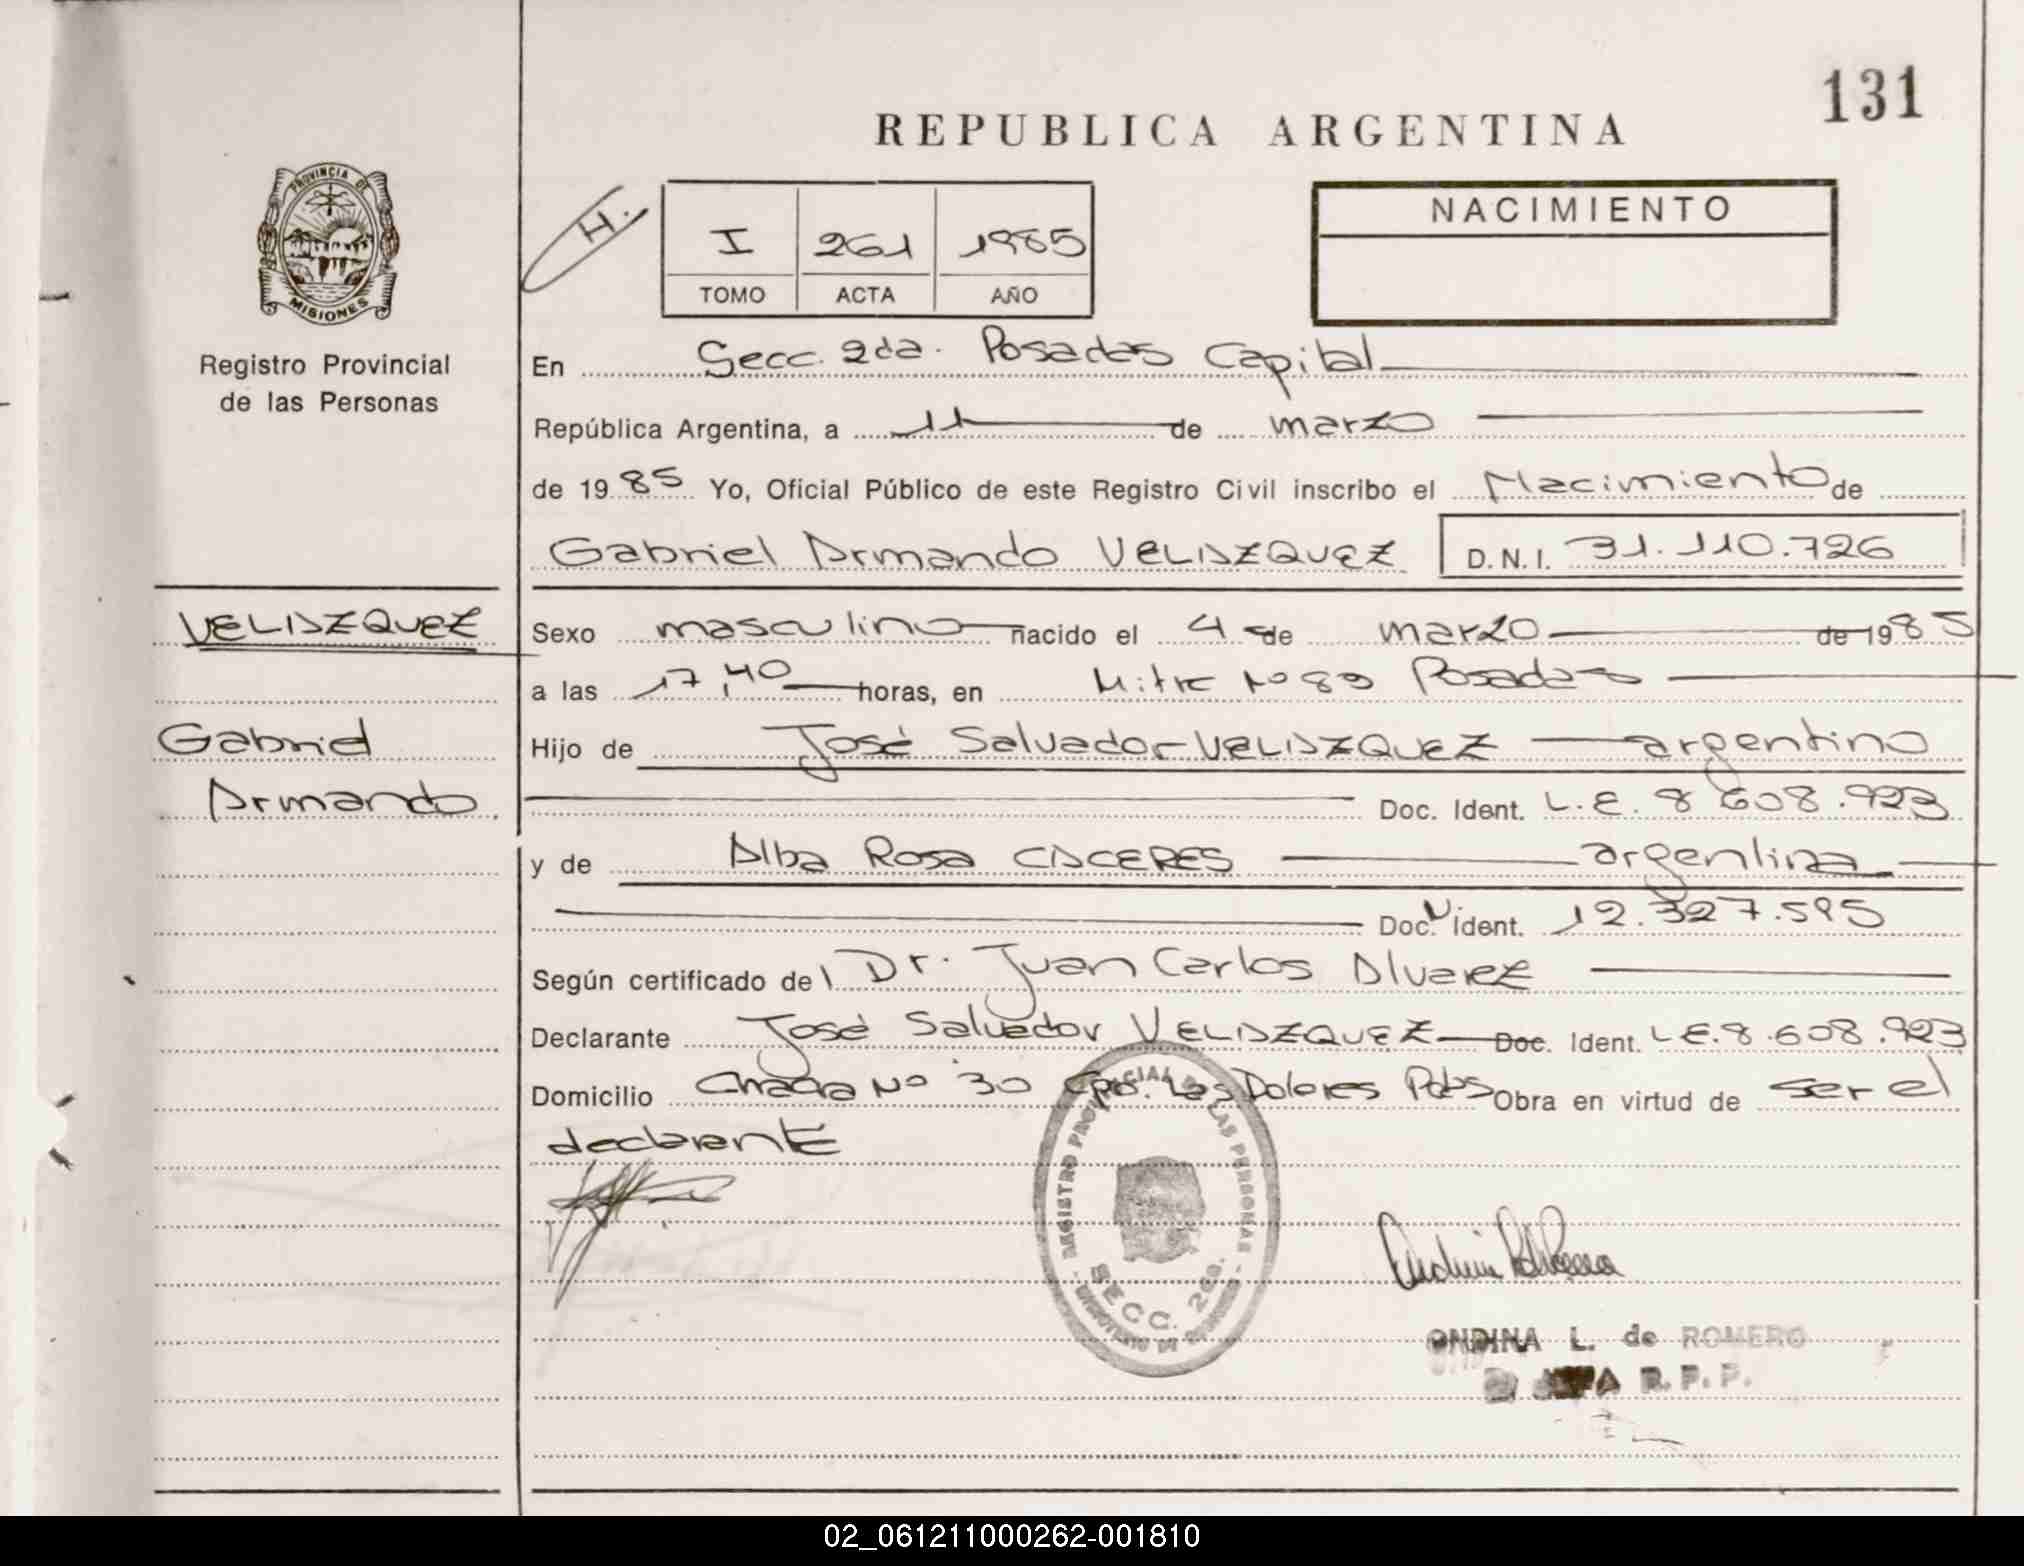 131
REPUBLICA ARGENTINA
PROVINCIA DE
MISIONES
Registro Provincial
de las Personas
H.
I 261 1985
TOMO ACTA AÑO
NACIMIENTO
En Secc. 2da. Posadas Capital
República Argentina, a 11 de marzo
de 1985 Yo, Oficial Público de este Registro Civil inscribo el Nacimiento de
Gabriel Armando VELAZQUEZ D.N.I. 31.110.726
VELAZQUEZ
Gabriel
Armando
Sexo masculino nacido el 4 de marzo de 1985
a las 17,40 horas, en Mitre Nº 89 Posadas
Hijo de José Salvador VELAZQUEZ argentino
Doc. Ident. L.E. 8.608.923
y de Alba Rosa CACERES argentina
Doc. Ident. 12.327.595
Según certificado del Dr. Juan Carlos Alvarez
Declarante José Salvador VELAZQUEZ Doc. Ident. L.E. 8.608.923
Domicilio Chacra Nº 30 Cpo. Las Dolores Pdas Obra en virtud de ser el
declarante
REGISTRO PROVINCIAL DE LAS PERSONAS
SECC. 2da.
ONDINA L. de ROMERO
R. P. P.
02_061211000262-001810